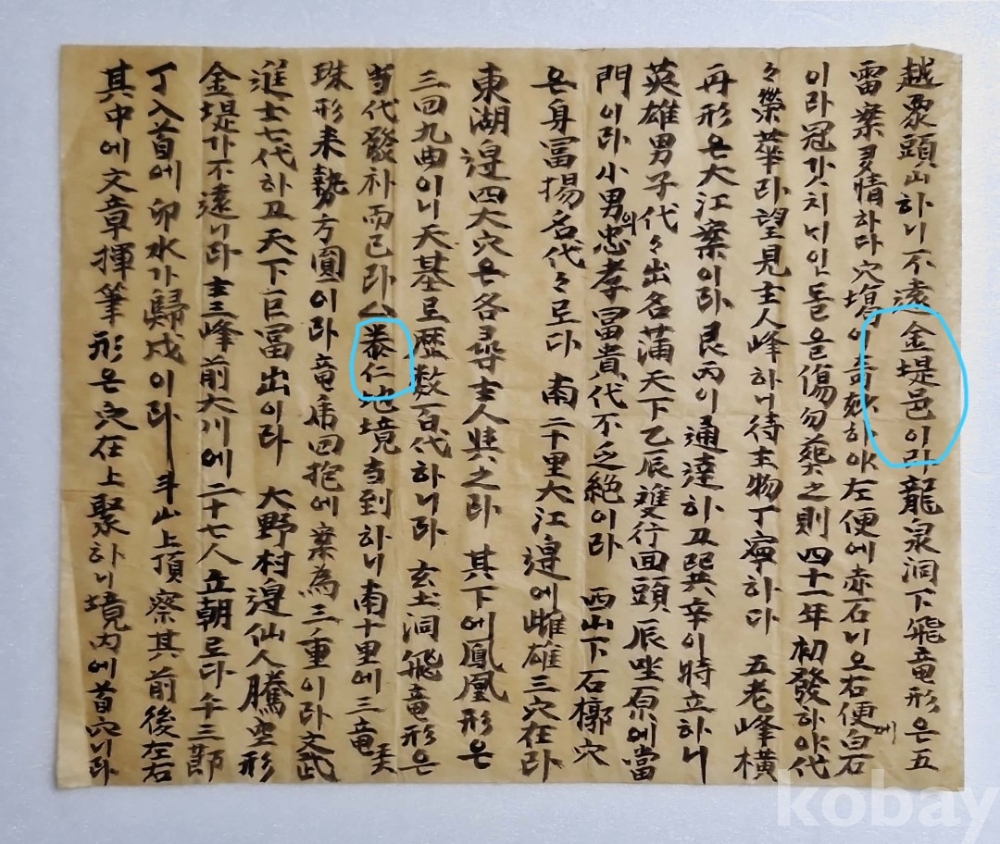 越衆頭山하니不遠金堤邑이라龍泉洞下飛竜形은五
雷案多情하다穴塲이奇妙하야左便에赤石이오右便에白石
이라冠갓치싸인돌을傷勿葬之則四十一年初發하야代
々榮華라望見主人峰하니待主物丁寧하다 五老峰橫
舟形은大江案이라艮丙이通達하고巽辛이特立하니
英雄男子代々出名蒲天下乙辰雙行回頭辰坐原에當
門이라小男의忠孝冨貴代不乏絶이라 西山下石槨穴
은身冨揚名代々로다 南二十里大江邉에雌雄三穴在라
東湖邉四大穴은各尋主人與之라 其下에鳳凰形은
三四九曲이니天基로歷数百代하니라 玄土洞飛竜形은
當代發补而已라 泰仁地境當到하니南十里에三竜美
珠形来勢方圓이라竜席四抱에案為三重이라文武
進士七代하고天下巨冨出이라 大野村邉仙人騰空形
金堤가不遠니라主三峰前大川에二十七人立朝로다午三節
丁入首에卯水가歸戌이라 斗山上頂察其前後左右
其中에文章揮筆形은穴在上聚하니境內에首穴니라
kobay